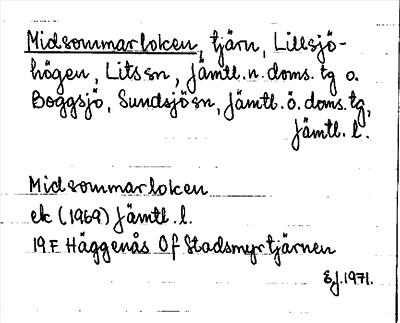 Midsommarloken, tjärn, Lillsjö-
högen, Lits sn, Jämtl. n. doms. tg o.
Boggsjö, Sundsjö sn, Jämtl. ö. doms. tg,
Jämtl. l.
Midsommarloken
ek (1969) Jämtl. l.
19 F Häggenås 0f Stadsmyrtjärnen
E.J. 1971.